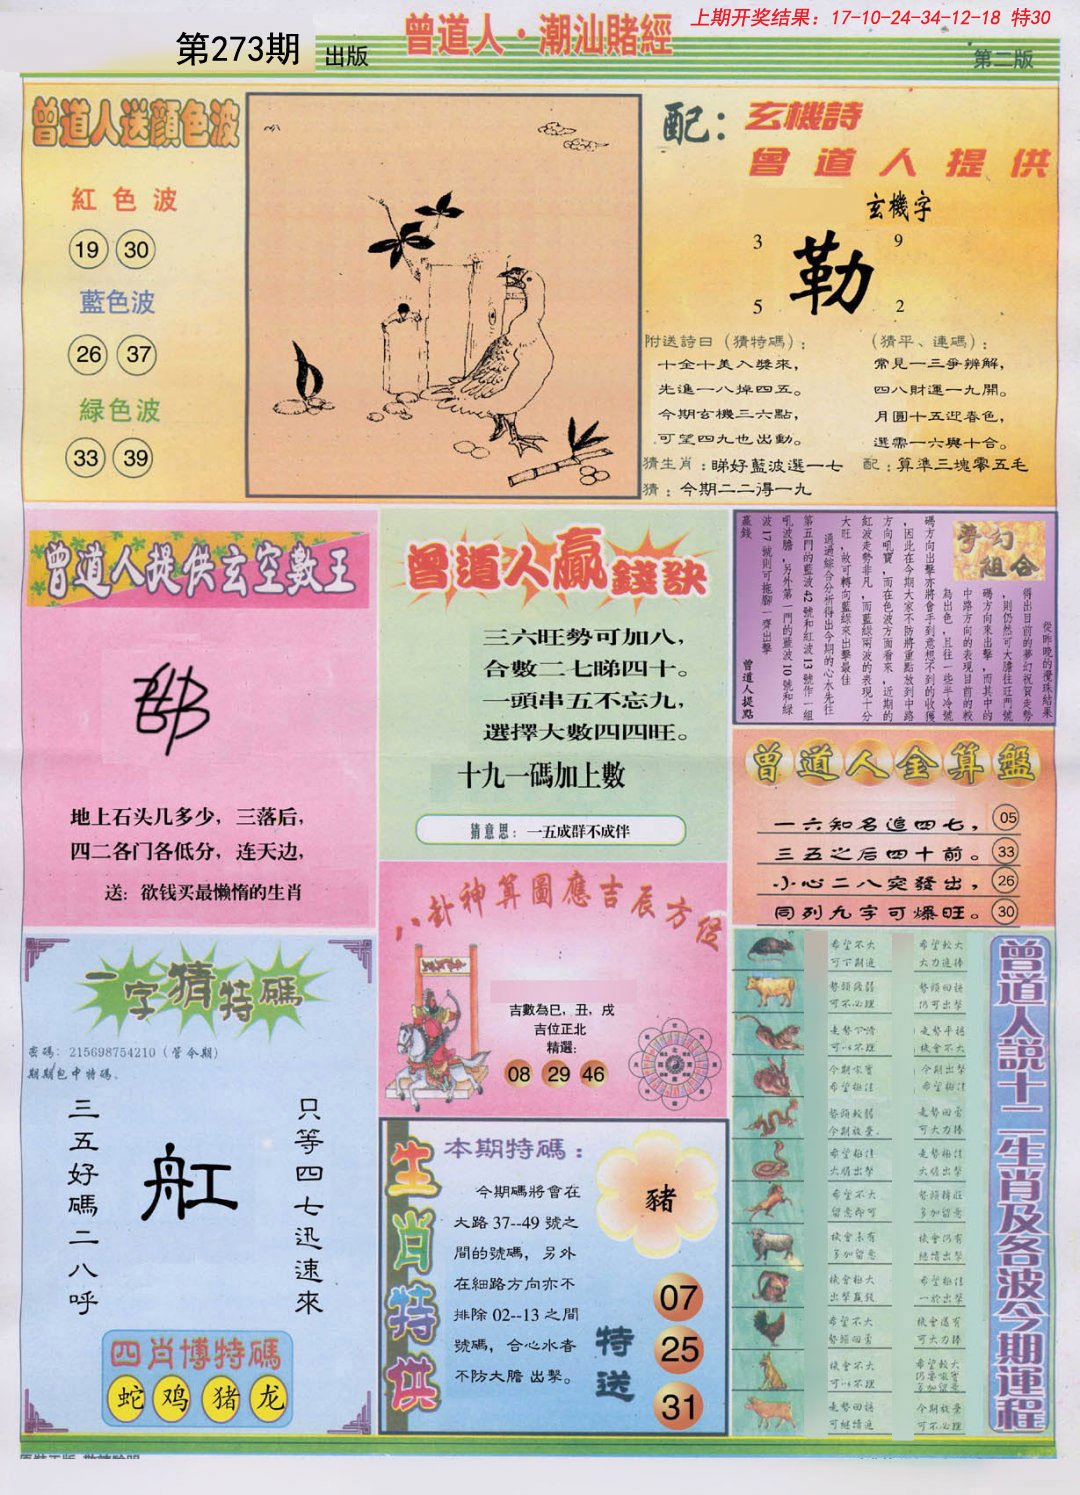 上期开奖结果：17-10-24-34-12-18 特30
第273期 出版
曾道人·潮汕賭經
第二版
曾道人送顏色波
紅色波
19 30
藍色波
26 37
緑色波
33 39
配：玄機詩
曾道人提供
玄機字
3 9
勒
5 2
附送詩曰（猜特碼）：
十全十美入獎來，
先進一八掉四五。
今期玄機三六點，
可望四九也出動。
（猜平、連碼）：
常見一三爭辨解，
四八財運一九開。
月圓十五迎春色，
選需一六與十合。
猜生肖：睇好藍波選一七
配：算準三塊零五毛
猜：今期二二得一九
曾道人提供玄空數王
地上石头几多少，三落后，
四二各门各低分，连天边，
送：欲钱买最懒惰的生肖
曾道人贏錢訣
三六旺勢可加八，
合數二七睇四十。
一頭串五不忘九，
選擇大數四四旺。
十九一碼加上數
猜意思：一五成群不成伴
夢幻組合
從昨晚的攪珠結果
得出目前的夢幻祝賀走勢
，則仍然可大膽往旺門號
碼方向來出擊，而其中的
中路方向的表現目前的較
為出色，且往一些半冷號
碼方向出擊亦將會手到意想不到的收獲
，因此在今期大家不防將重點放到中路
方向吼寶，而在色波方面看來，近期的
紅波走勢非凡，而藍綠兩波的表現十分
大旺，故可轉向藍綠來出擊最佳
通過綜合分析得出今期的心水先往
第五門的藍波42號和紅波13號作一組
吼波膽，另外第一門的藍波10號和綠
波17號則可拖腳一齊出擊
贏錢
曾道人提點
曾道人金算盤
一六知名追四七，05
三五之后四十前。33
小心二八突發出，26
同列九字可爆旺。30
八卦神算圖應吉辰方位
吉數為巳，丑，戌
吉位正北
精選：
08 29 46
一字猜特碼
密碼：215698754210（管令期）
期期包中特碼、
三五好碼二八呼
舡
只等四七迅速來
四肖博特碼
蛇 鸡 猪 龙
生肖特供
本期特碼：
今期碼將會在
大路37--49號之
間的號碼，另外
在細路方向亦不
排除02--13之間
號碼，合心水者
不防大膽出擊。
豬
特送
07
25
31
曾道人說十二生肖及各波今期運程
希望不大 希望較大
可下期進 大力進捧
勢頭疲弱 勢頭回揚
可不必理 仍可出擊
走勢平揚
可以不理 機會不大
今期出擊
希望極佳 希望極佳
勢頭較弱 走勢回雷
今期放棄 可大力捧
希望極佳 走勢極佳
大膽出擊 大膽出擊
希望不大
留意即可 多加留意
機會未有 機會仍有
多加留意 繼續出擊
機會極大 希望極佳
出擊贏錢 一於出擊
希望不大 機會還有
可大力捧
機會不大 希望較大
可以不理 多加留意
走勢回揚 今期放棄
可繼續進 可不必理